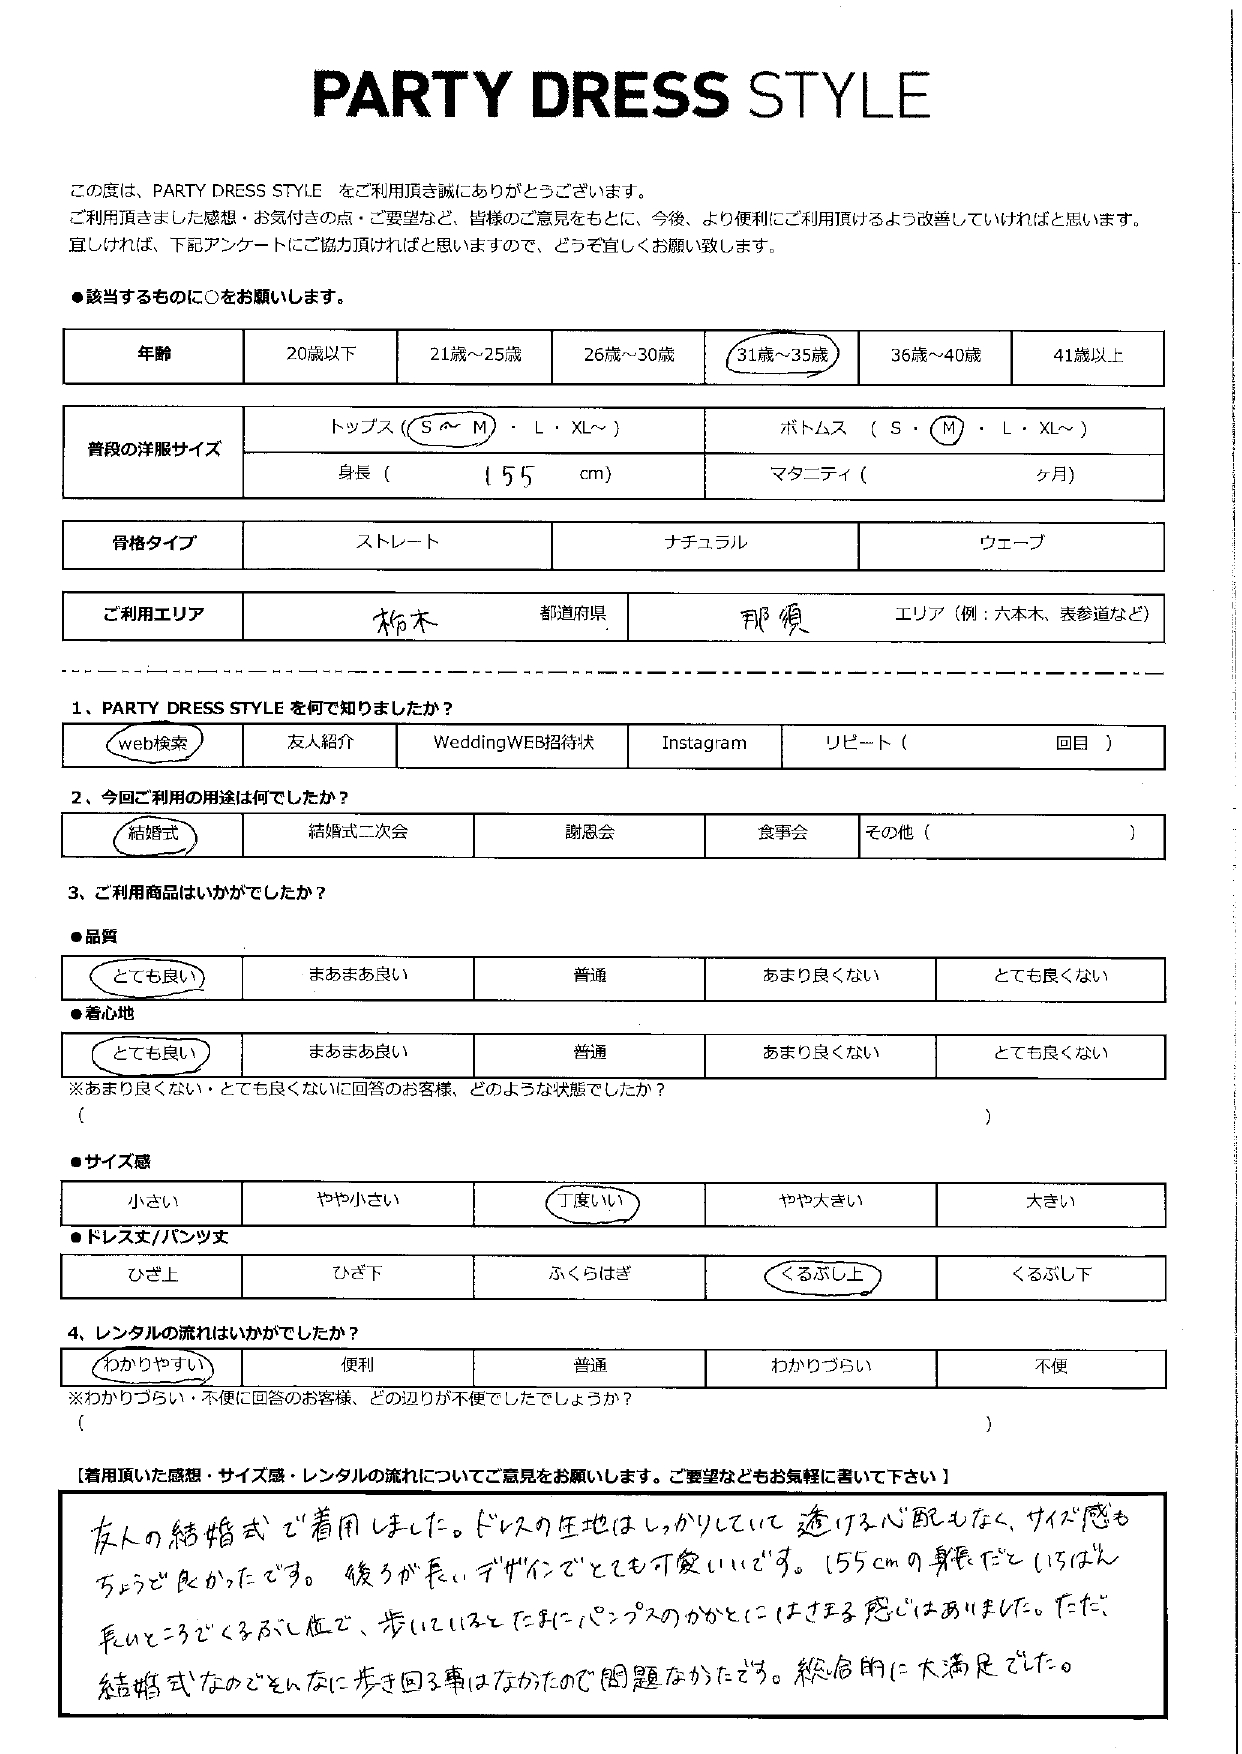 PARTY DRESS STYLE
この度は、PARTY DRESS STYLE をご利用頂き誠にありがとうございます。
ご利用頂きました感想・お気付きの点・ご要望など、皆様のご意見をもとに、今後、より便利にご利用頂けるよう改善していければと思います。
宜しければ、下記アンケートにご協力頂ければと思いますので、どうぞ宜しくお願い致します。
●該当するものに○をお願いします。
年齢 20歳以下 21歳～25歳 26歳～30歳 31歳～35歳 36歳～40歳 41歳以上
普段の洋服サイズ
トップス ( S ～ M ・ L ・ XL～ ) ボトムス ( S ・ M ・ L ・ XL～ )
身長 ( 155 cm) マタニティ ( ヶ月)
骨格タイプ ストレート ナチュラル ウェーブ
ご利用エリア 栃木 都道府県 那須 エリア（例：六本木、表参道など）
1、PARTY DRESS STYLE を何で知りましたか？
web検索 友人紹介 WeddingWEB招待状 Instagram リピート ( 回目 )
2、今回ご利用の用途は何でしたか？
結婚式 結婚式二次会 謝恩会 食事会 その他 ( )
3、ご利用商品はいかがでしたか？
●品質
とても良い まあまあ良い 普通 あまり良くない とても良くない
●着心地
とても良い まあまあ良い 普通 あまり良くない とても良くない
※あまり良くない・とても良くないに回答のお客様、どのような状態でしたか？
( )
●サイズ感
小さい やや小さい 丁度いい やや大きい 大きい
●ドレス丈/パンツ丈
ひざ上 ひざ下 ふくらはぎ くるぶし上 くるぶし下
4、レンタルの流れはいかがでしたか？
わかりやすい 便利 普通 わかりづらい 不便
※わかりづらい・不便に回答のお客様、どの辺りが不便でしたでしょうか？
( )
【着用頂いた感想・サイズ感・レンタルの流れについてご意見をお願いします。ご要望などもお気軽に書いて下さい】
友人の結婚式で着用しました。ドレスの生地はしっかりしていて透ける心配もなく、サイズ感も
ちょうど良かったです。後ろが長いデザインでとても可愛いいです。155cmの身長だといちばん
長いところでくるぶし位で、歩いているとたまにパンプスのかかとにはさまる感じはありました。ただ、
結婚式なのでそんなに歩き回る事はなかったので問題なかったです。総合的に大満足でした。